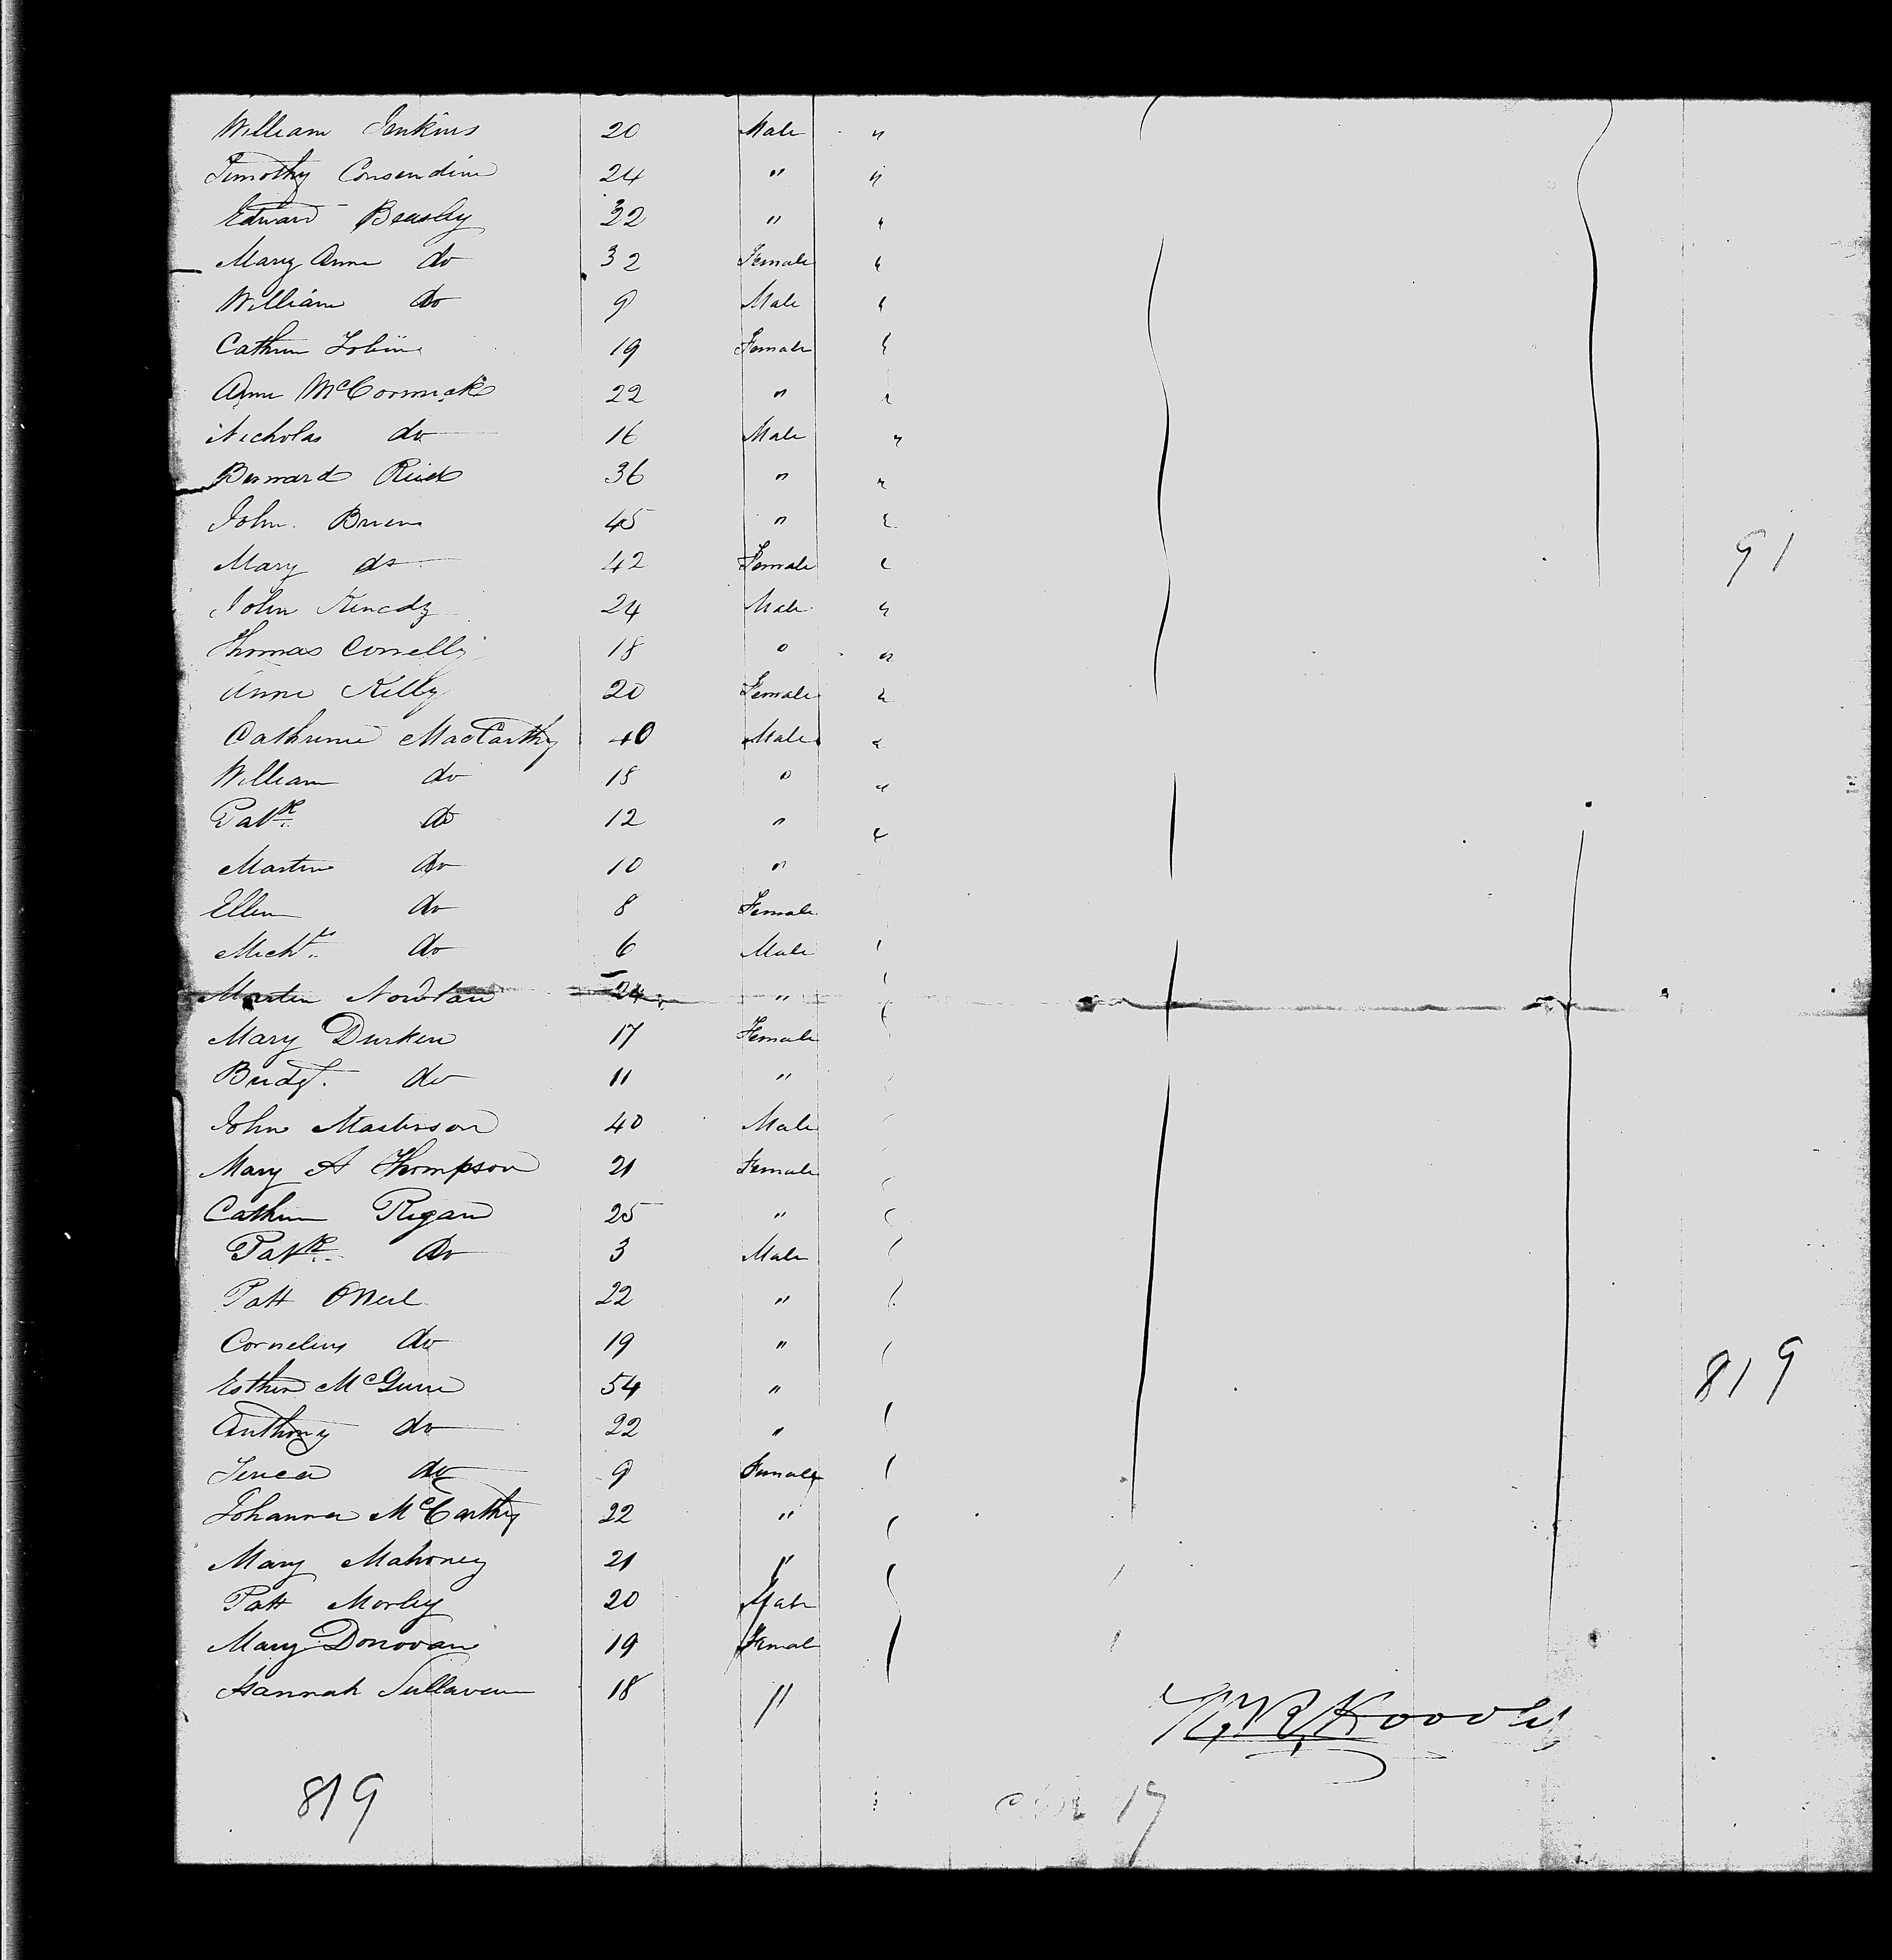 William Jenkins 20 Male "
Timothy Consendine 24 " "
Edward Beasley 32 " "
Mary Anne do 32 Female "
William do 9 Male "
Cathrin Tobin 19 Female "
Anne McCormick 22 " "
Nicholas do 16 Male "
Bernard Reid 36 " "
John Brien 45 " "
Mary do 42 Female "
John Kenedy 24 Male "
Thomas Connelly 18 " "
Anne Kelly 20 Female "
Cathrine MacCarthy 40 Male "
William do 18 " "
Patk do 12 " "
Martin do 10 "
Ellen do 8 Female
Michl do 6 Male
Martin Nowlan 24 "
Mary Durken 17 Female
Bridgt. do 11 "
John Masterson 40 Male
Mary A Thompson 21 Female
Cathrin Regan 25 "
Patk do 3 Male
Patt ONeil 22 "
Cornelius do 19 "
Esther McGuire 54 "
Anthony do 22 "
do 9 Female
Johanna McCarthy 22 "
Mary Mahoney 21 "
Patt Morley 20 Male
Mary Donovan 19 Femal
Hannah Sullavan 18 "
91
819
819
17